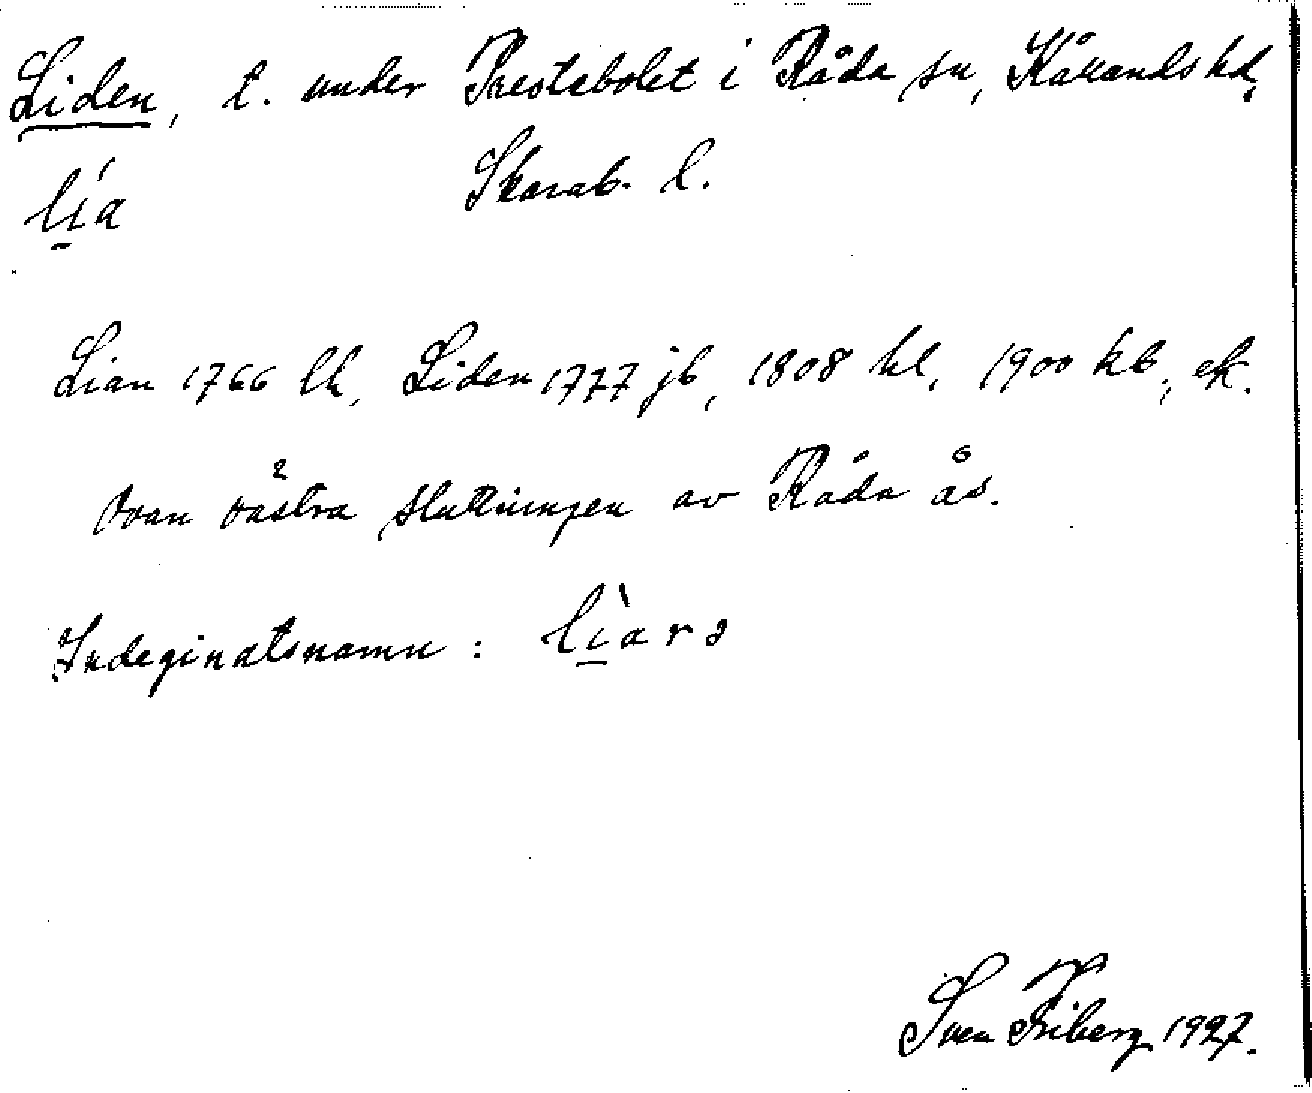 Liden, l. under Prestebolet i Råda sn, Kållands hd,
Skarab. l.
lí̱a
Lian 1766 lk, Liden 1777 jb, 1808 hl, 1900 kb, ek.
Ovan västra sluttningen av Råda ås.
Indeginatsnamn: lì̱arə
Sven Friberg 1927.